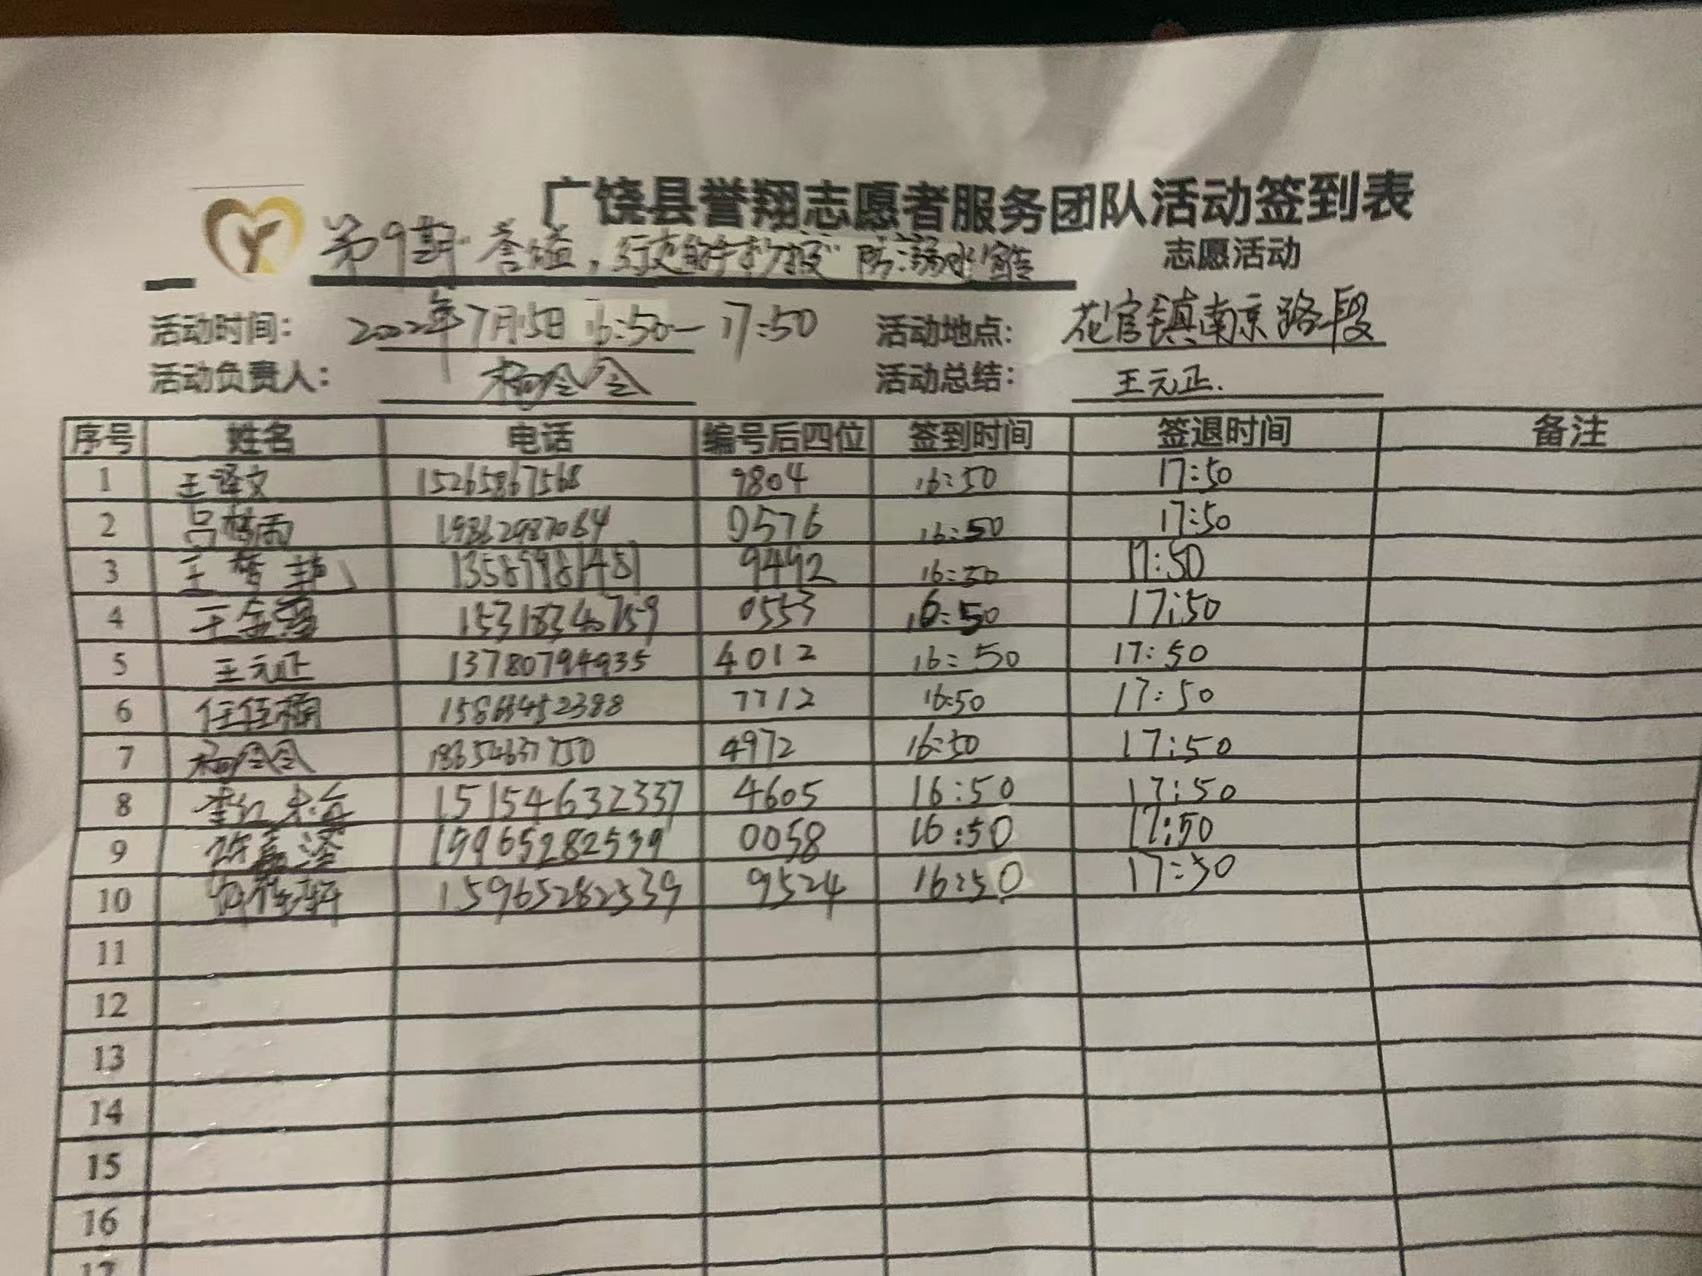 广饶县誉翔志愿者服务团队活动签到表
第9期 防溺水宣传 志愿活动
活动时间： 2022年7月15日 16:50—17:50 活动地点： 花官镇南京路段
活动负责人： 杨令令 活动总结： 王元正.
序号 姓名 电话 编号后四位 签到时间 签退时间 备注
1 王译文 15265867568 9804 16:50 17:50
2 吕梦雨 19862987064 0576 16:50 17:50
3 王 13589981481 9492 16:50 17:50
4 王金 15318340759 0553 16:50 17:50
5 王元正 13780794935 4012 16:50 17:50
6 任 7712 16:50 17:50
7 杨令令 18654637750 4972 16:50 17:50
8 李红 15154632337 4605 16:50 17:50
9 许 泽 19965282539 0058 16:50 17:50
10 15965282539 9524 16:50 17:50
11
12
13
14
15
16
17